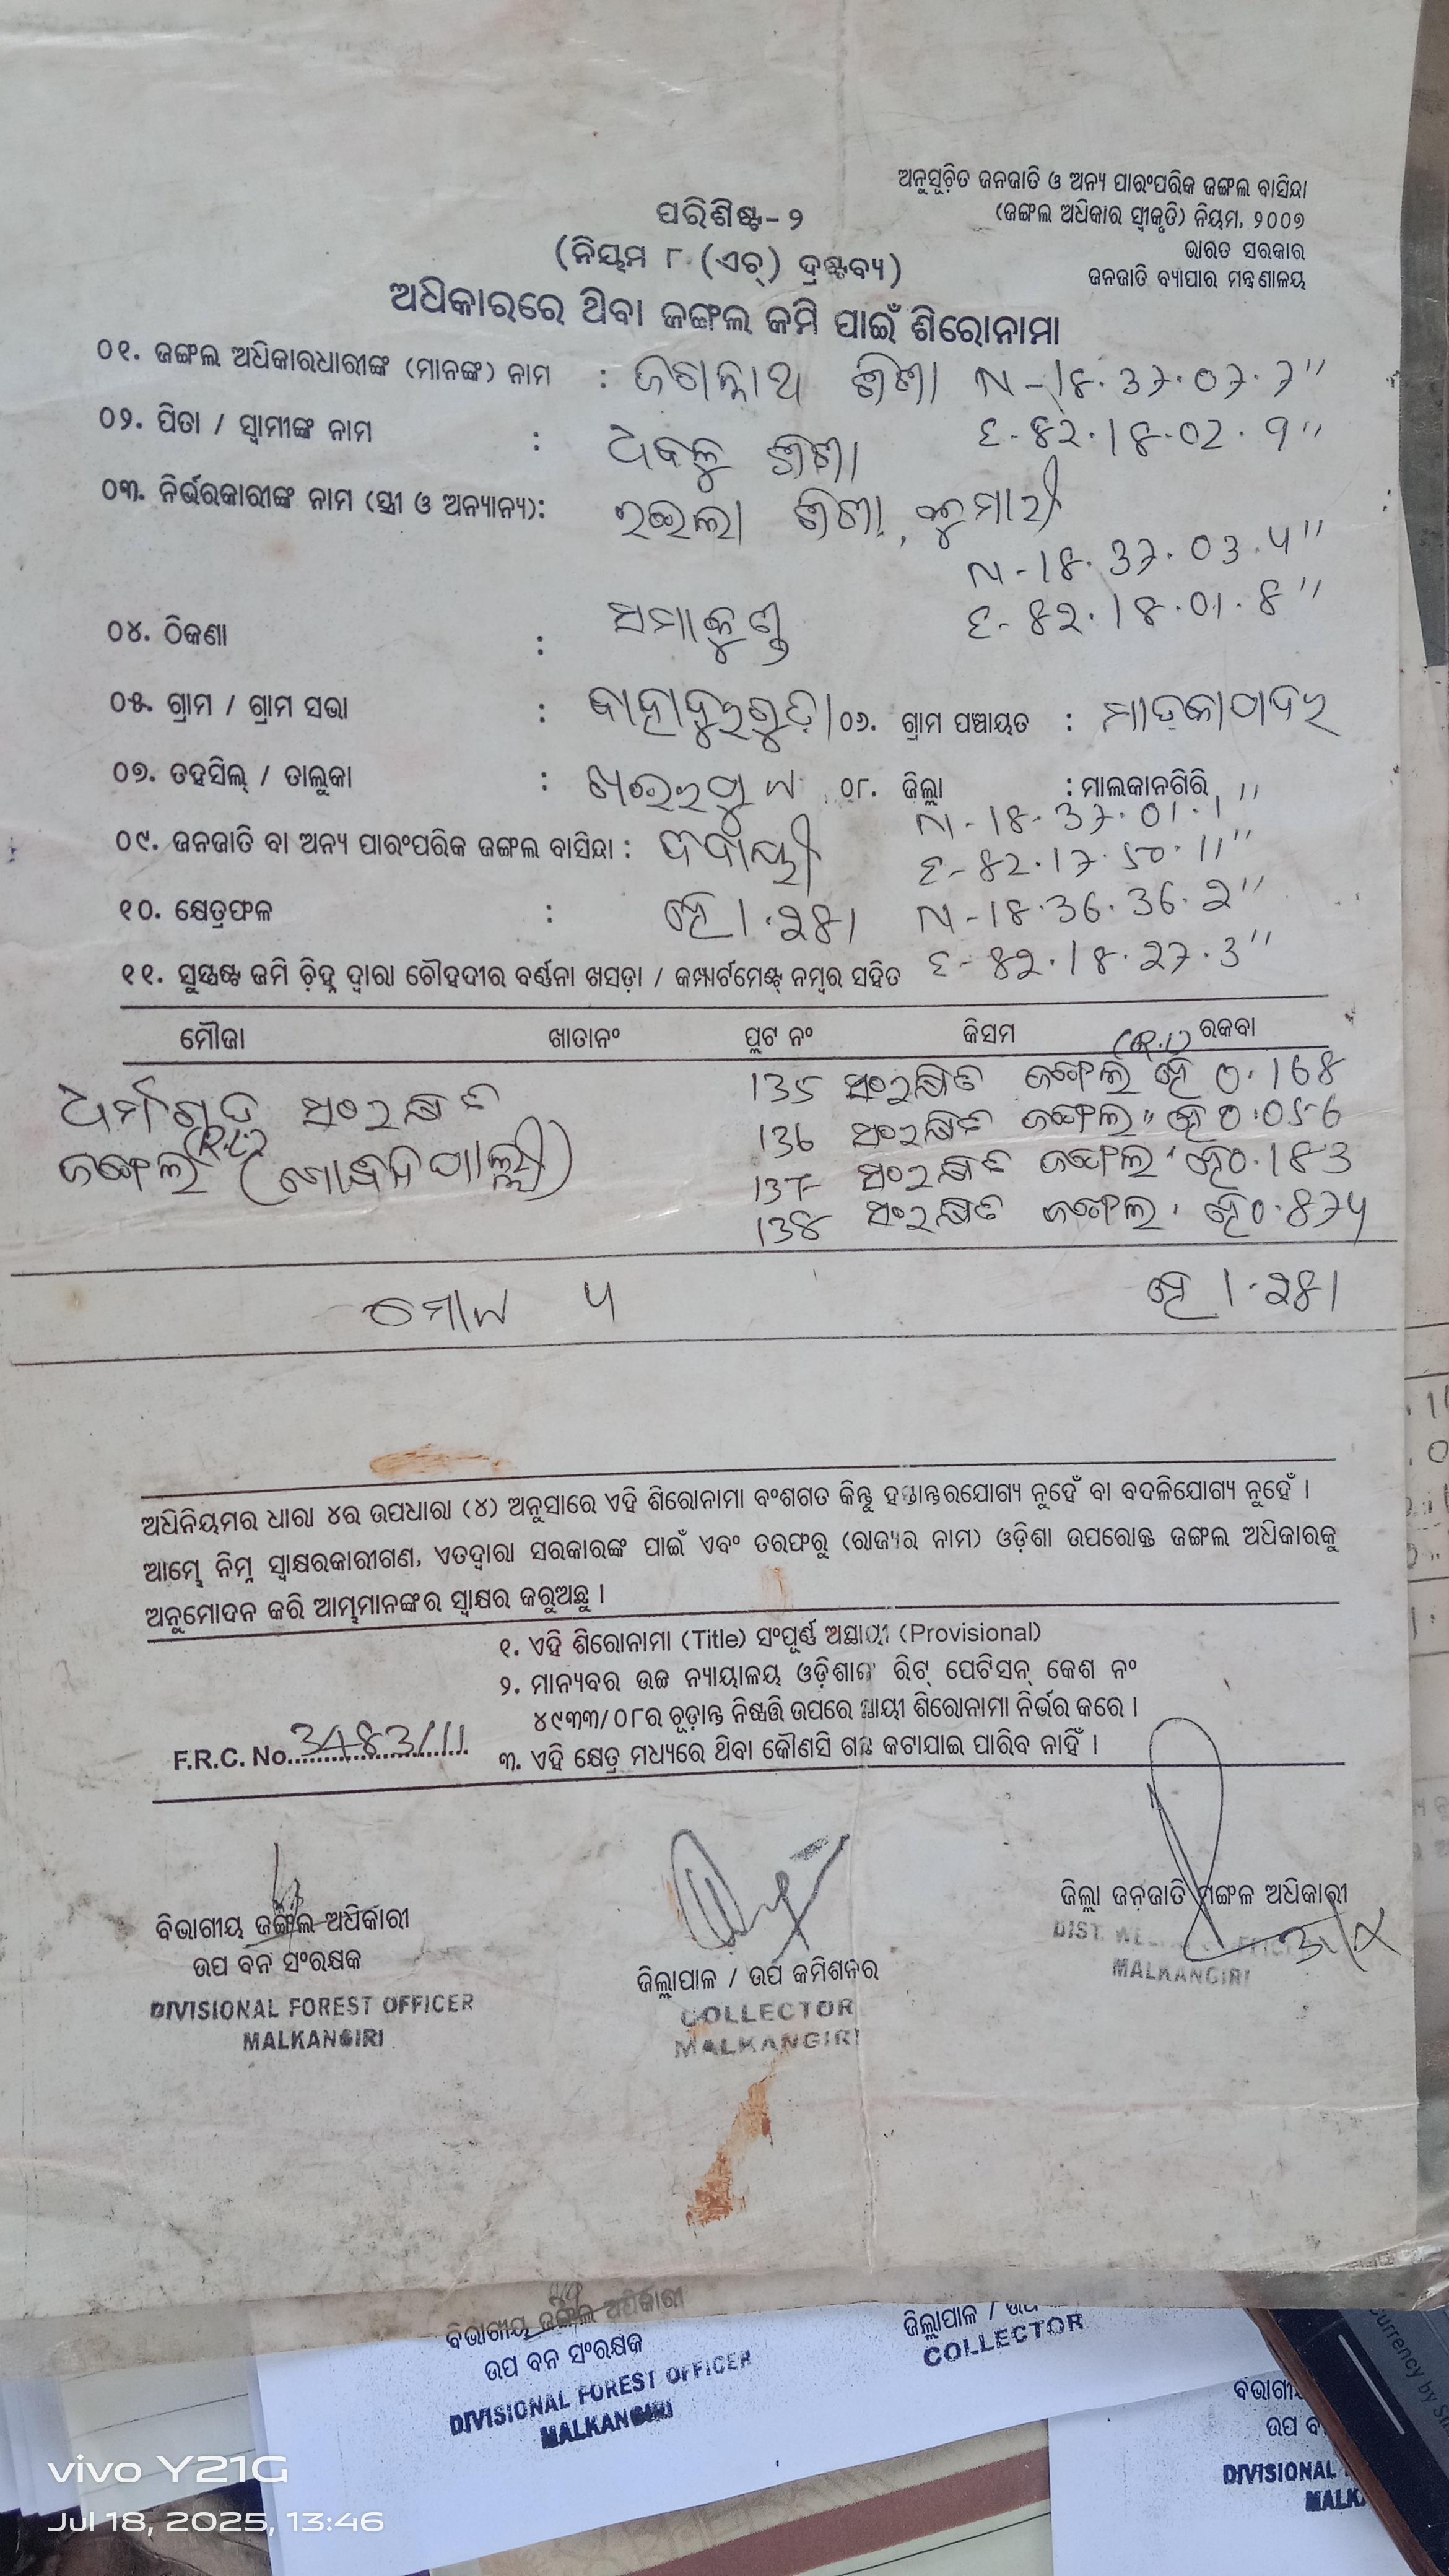 ଅନୁସୂଚିତ ଜନଜାତି ଓ ଅନ୍ୟ ପାରଂପରିକ ଜଙ୍ଗଲ ବାସିନ୍ଦା
(ଜଙ୍ଗଲ ଅଧିକାର ସ୍ୱୀକୃତି) ନିୟମ, ୨୦୦୭
ଭାରତ ସରକାର
ଜନଜାତି ବ୍ୟାପାର ମନ୍ତ୍ରଣାଳୟ
ପରିଶିଷ୍ଟ - ୨
(ନିୟମ ୮ (ଏଚ୍) ଦ୍ରଷ୍ଟବ୍ୟ)
ଅଧିକାରରେ ଥିବା ଜଙ୍ଗଲ ଜମି ପାଇଁ ଶିରୋନାମା
୦୧. ଜଙ୍ଗଲ ଅଧିକାରଧାରୀଙ୍କ (ମାନଙ୍କ) ନାମ : ଜଗନ୍ନାଥ N-18.37.07.7"
୦୨. ପିତା / ସ୍ୱାମୀଙ୍କ ନାମ : E-82.18.02.9"
୦୩. ନିର୍ଭରକାରୀଙ୍କ ନାମ (ସ୍ତ୍ରୀ ଓ ଅନ୍ୟାନ୍ୟ): , କୁମାରୀ
N-18.37.03.4"
୦୪. ଠିକଣା : E-82.18.01.8"
୦୫. ଗ୍ରାମ / ଗ୍ରାମ ସଭା : ୦୬. ଗ୍ରାମ ପଞ୍ଚାୟତ :
୦୭. ତହସିଲ୍ / ତାଲୁକା : ଖଇରପୁଟ ୦୮. ଜିଲ୍ଲା : ମାଲକାନଗିରି
N-18-37.01.1"
୦୯. ଜନଜାତି ବା ଅନ୍ୟ ପାରଂପରିକ ଜଙ୍ଗଲ ବାସିନ୍ଦା : ଦିଦାୟୀ E-82.17.50.11"
୧୦. କ୍ଷେତ୍ରଫଳ : ହେ 1.281 N-18.36.36.2"
E-82.18.27.3"
୧୧. ସୁସ୍ପଷ୍ଟ ଜମି ଚିହ୍ନ ଦ୍ୱାରା ଚୌହଦୀର ବର୍ଣ୍ଣନା ଖସଡ଼ା / କମ୍ପାର୍ଟମେଣ୍ଟ୍ ନମ୍ବର ସହିତ
ମୌଜା ଖାତାନଂ ପ୍ଲଟ ନଂ କିସମ ରକବା
135 ସଂରକ୍ଷିତ ଜଙ୍ଗେଲ ହେ 0.168
ସଂରକ୍ଷିତ 136 ସଂରକ୍ଷିତ ଜଙ୍ଗେଲ " ହେ 0.056
ଜଙ୍ଗେଲ 137 ସଂରକ୍ଷିତ ଜଙ୍ଗେଲ ହେ 0.183
138 ସଂରକ୍ଷିତ ଜଙ୍ଗେଲ ହେ 0.874
ମୋଟ 4 ହେ 1.281
ଅଧିନିୟମର ଧାରା ୪ର ଉପଧାରା (୪) ଅନୁସାରେ ଏହି ଶିରୋନାମା ବଂଶଗତ କିନ୍ତୁ ହସ୍ତାନ୍ତରଯୋଗ୍ୟ ନୁହେଁ ବା ବଦଳିଯୋଗ୍ୟ ନୁହେଁ ।
ଆମ୍ଭେ ନିମ୍ନ ସ୍ୱାକ୍ଷରକାରୀଗଣ, ଏତଦ୍ୱାରା ସରକାରଙ୍କ ପାଇଁ ଏବଂ ତରଫରୁ (ରାଜ୍ୟର ନାମ) ଓଡ଼ିଶା ଉପରୋକ୍ତ ଜଙ୍ଗଲ ଅଧିକାରକୁ
ଅନୁମୋଦନ କରି ଆମ୍ଭମାନଙ୍କର ସ୍ୱାକ୍ଷର କରୁଅଛୁ ।
୧. ଏହି ଶିରୋନାମା (Title) ସଂପୂର୍ଣ୍ଣ ଅସ୍ଥାୟୀ (Provisional)
୨. ମାନ୍ୟବର ଉଚ୍ଚ ନ୍ୟାୟାଳୟ ଓଡ଼ିଶାର ରିଟ୍ ପେଟିସନ୍ କେଶ ନଂ
୪୯୩୩/୦୮ର ଚୂଡ଼ାନ୍ତ ନିଷ୍ପତ୍ତି ଉପରେ ସ୍ଥାୟୀ ଶିରୋନାମା ନିର୍ଭର କରେ ।
F.R.C. No. 3483/11
୩. ଏହି କ୍ଷେତ୍ର ମଧ୍ୟରେ ଥିବା କୌଣସି ଗଛ କଟାଯାଇ ପାରିବ ନାହିଁ ।
ଜିଲ୍ଲା ଜନଜାତି ମଙ୍ଗଳ ଅଧିକାରୀ
ବିଭାଗୀୟ ଜଙ୍ଗଲ ଅଧିକାରୀ
DIST. WEL
ଉପ ବନ ସଂରକ୍ଷକ
ଜିଲ୍ଲାପାଳ / ଉପ କମିଶନର
MALKANGIRI
DIVISIONAL FOREST OFFICER
COLLECTOR
MALKANGIRI
MALKANGIRI
ବିଭାଗୀୟ ଜଙ୍ଗଲ ଅଧିକାରୀ
ଜିଲ୍ଲାପାଳ / ଉପ
ଉପ ବନ ସଂରକ୍ଷକ
COLLECTOR
DIVISIONAL FOREST OFFICER
MALKANGIRI
ବିଭାଗୀୟ
ଉପ ବ
DIVISIONAL
MALK
urrency by
vivo Y21G
Jul 18, 2025, 13:46